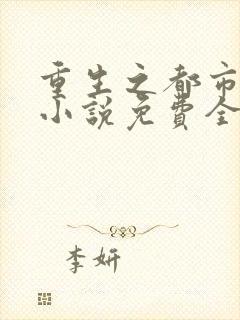 重生之都市
小说免费全
李妍